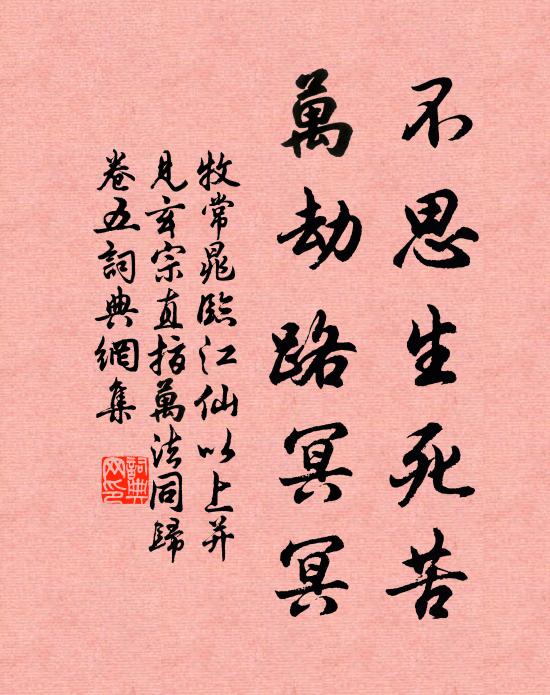 不思生死苦
萬劫路冥冥
牧常晁臨江仙以上并
見玄宗直指萬法同歸
卷五詞典網集
詞典
网印